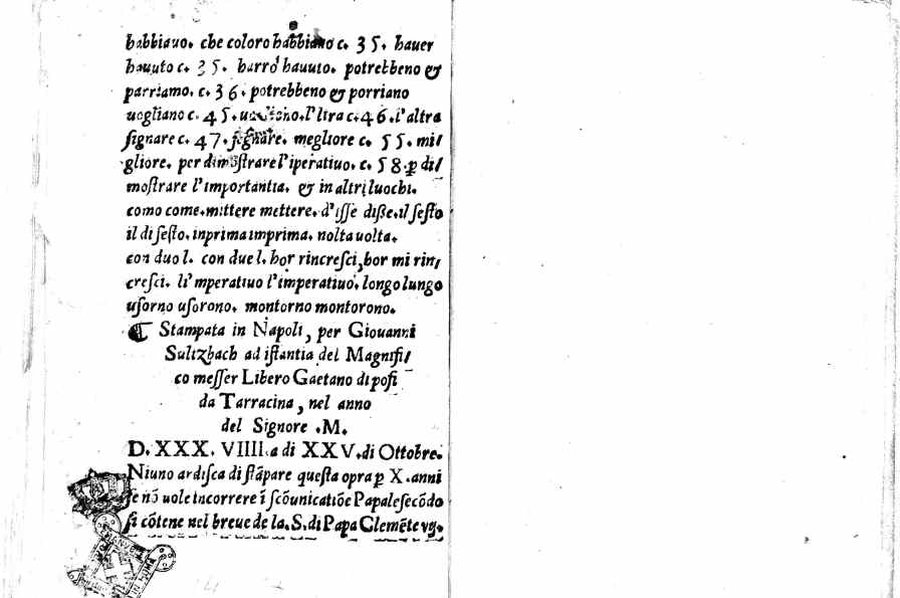 habbiauo. che coloro habbiano c. 35. hauer
hauuto c. 35. harrò hauuto. potrebbeno &
parriamo. c. 36. potrebbeno & porriano
uogliano c. 45. l'ltra c. 46. l'altra
signare c. 47. segnare. megliore c. 55. mi/
gliore. per dimostrare l'iperatiuo. c. 58 ꝑ di/
mostrare l'importantia. & in altri luochi.
como come. mittere mettere. d'isse disse. il sesto
il di sesto. inprima imprima. nolta uolta.
con duo l. con due l. hor rincresci, hor mi rin/
cresci. li'mperatiuo l'imperatiuo. longo lungo
usorno usorono. montorno montorono.
Stampata in Napoli, per Giouanni
Sultzbach ad istantia del Magnifi/
co messer Libero Gaetano di pofi
da Tarracina, nel anno
del Signore .M.
D. XXX. VIIII. a di XXV. di Ottobre.
Niuno ardisca di stāpare questa opra ꝑ X. anni
se nō uole incorrere ī scōunicatiōe Papale secōdo
si cōtene nel breue de la. S. di Papa Clemēte vij.